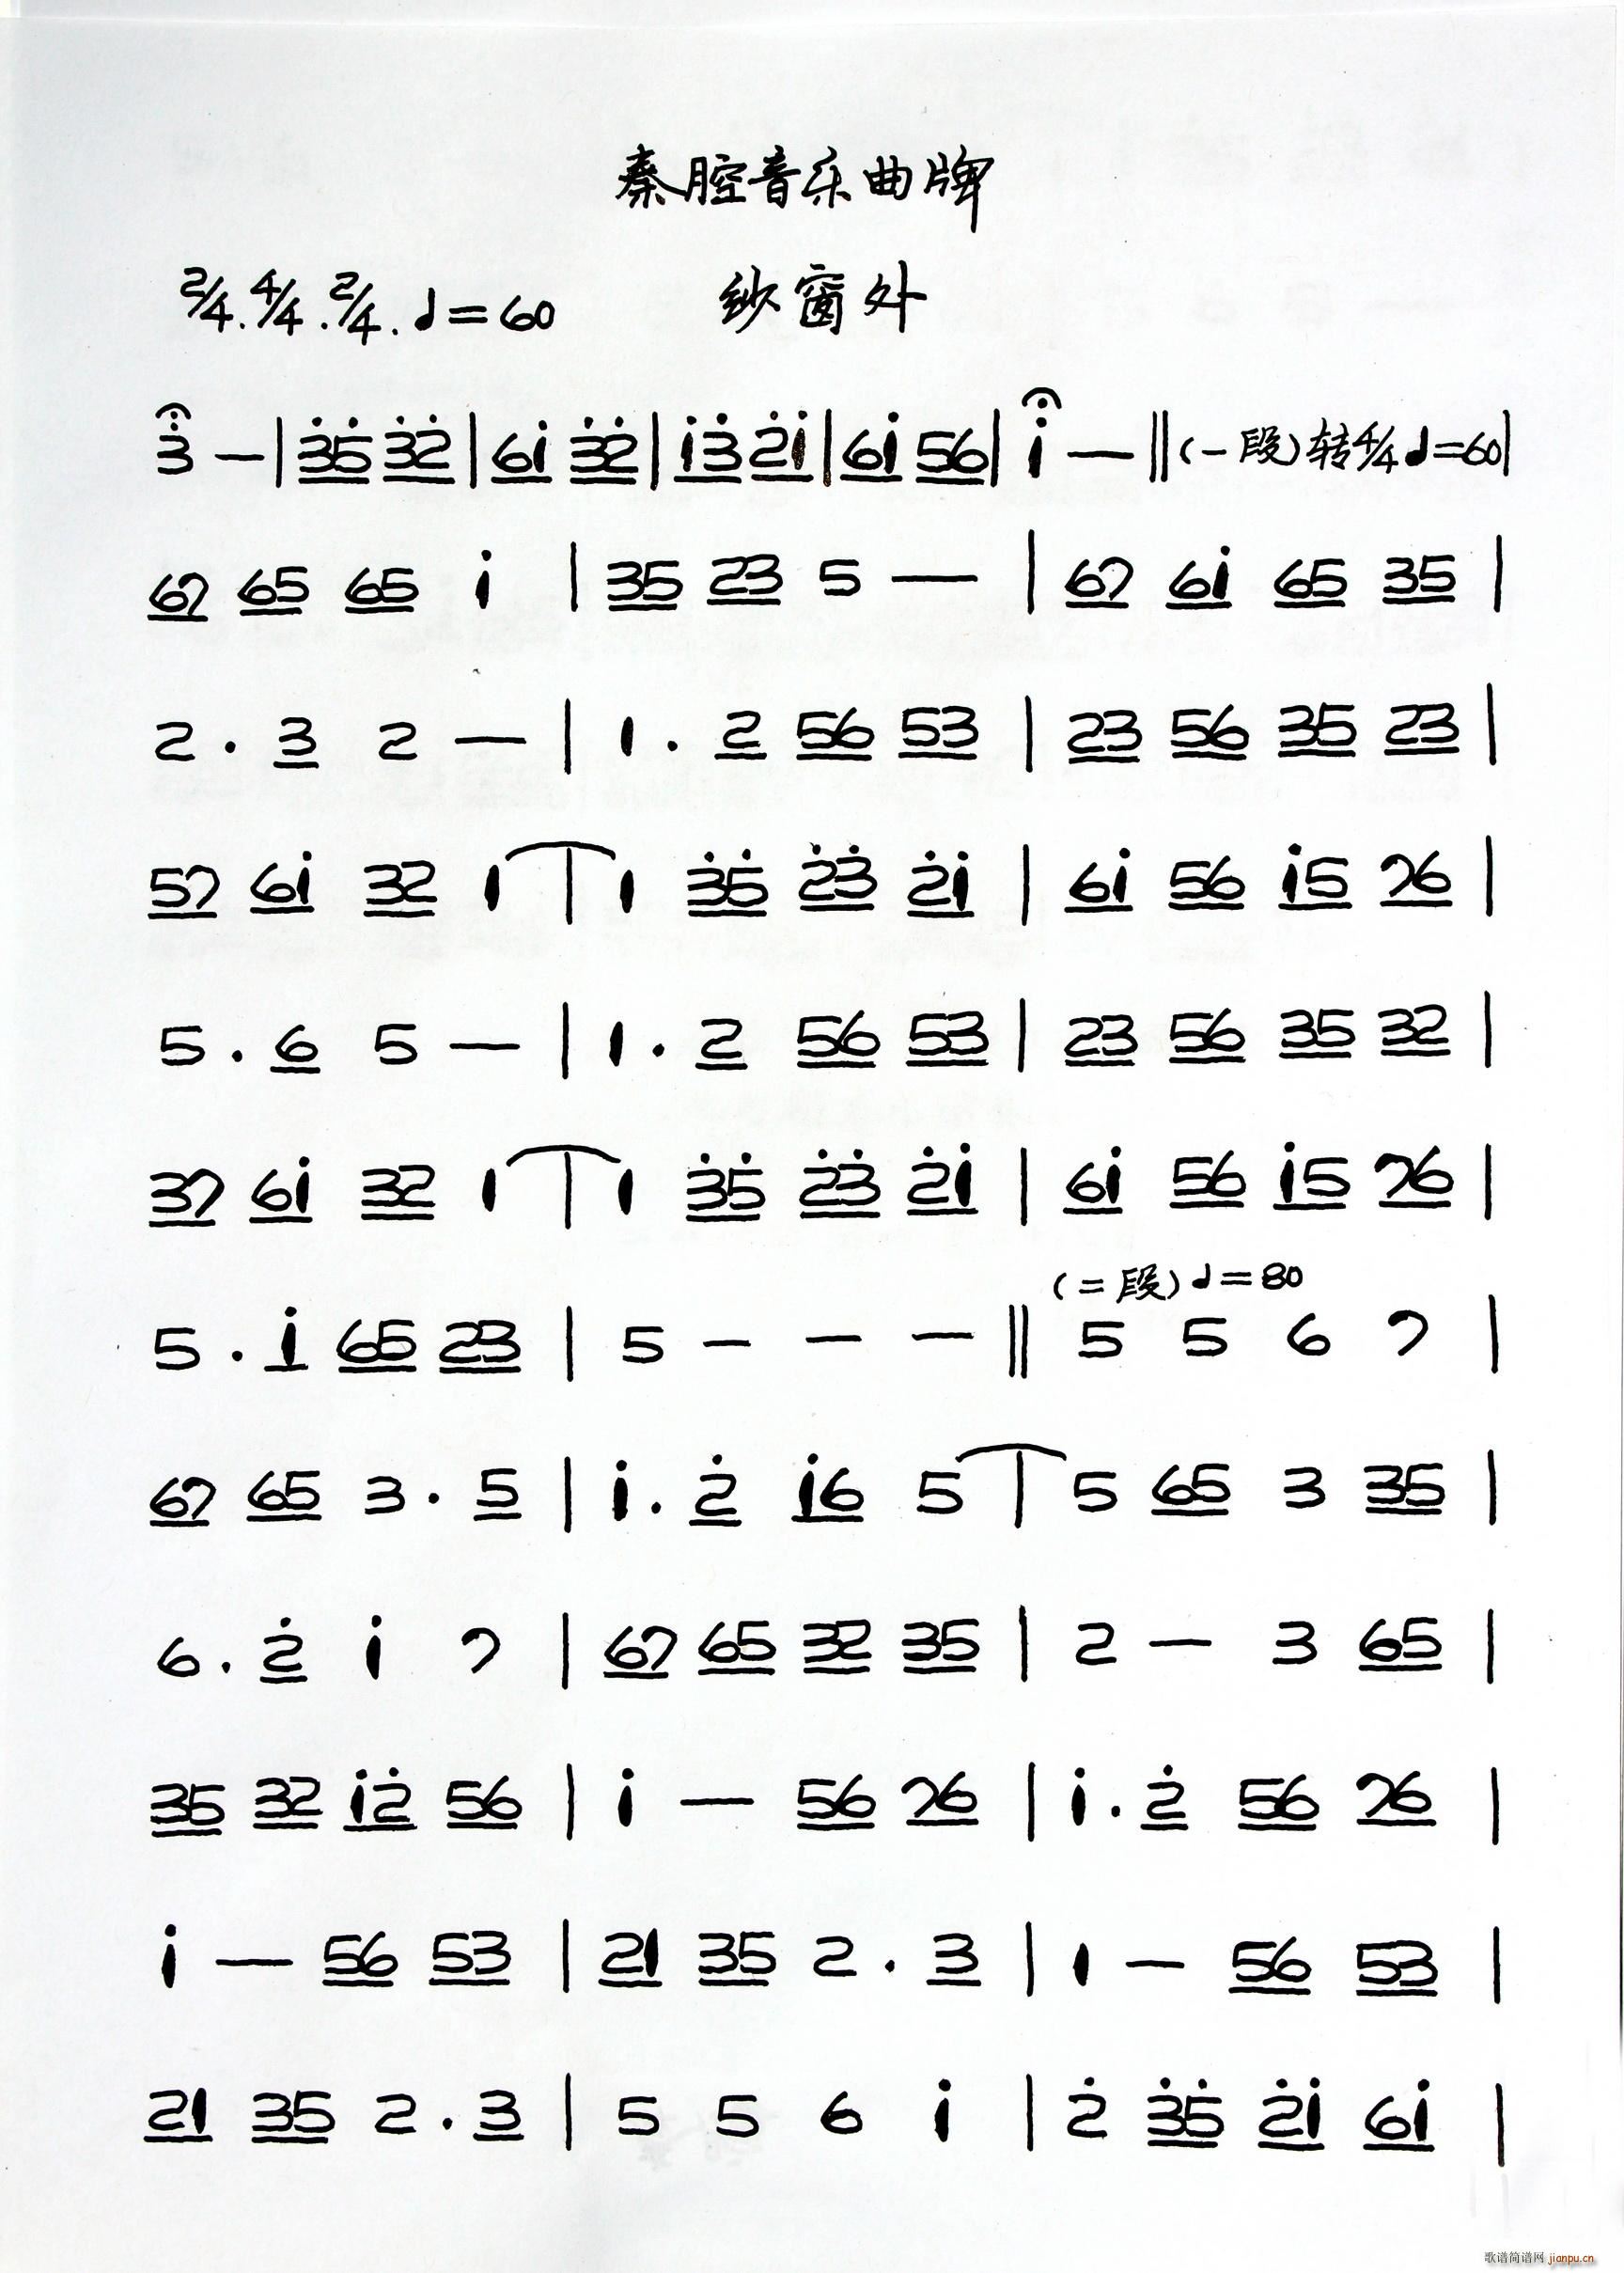 秦腔音乐曲牌
2/4. 4/4. 2/4. ♩=60 纱窗外
3̇ — | 3̇5̇ 3̇2̇ | 6i 3̇2̇ | i3̇ 2̇i | 6i 56 | i — ‖ (一段) 转4/4 ♩=60 |
67 65 65 i | 35 23 5 — | 67 6i 65 35 |
2 . 3 2 — | 1 . 2 56 53 | 23 56 35 23 |
57 6i 32 1 | 1 3̇5̇ 2̇3̇ 2̇i | 6i 56 i5 76 |
5 . 6 5 — | 1 . 2 56 53 | 23 56 35 32 |
37 6i 32 1 | 1 3̇5̇ 2̇3̇ 2̇i | 6i 56 i5 76 |
(二段) ♩=80
5 . i 65 23 | 5 — — — ‖ 5 5 6 7 |
67 65 3 . 5 | i . 2̇ i6 5 | 5 65 3 35 |
6 . 2̇ i 7 | 67 65 32 35 | 2 — 3 65 |
35 32 i2̇ 56 | i — 56 76 | i . 2̇ 56 76 |
i — 56 53 | 21 35 2 . 3 | 1 — 56 53 |
21 35 2 . 3 | 5 5 6 i | 2̇ 3̇5̇ 2̇i 6i |
歌谱简谱网 jianpu.cn